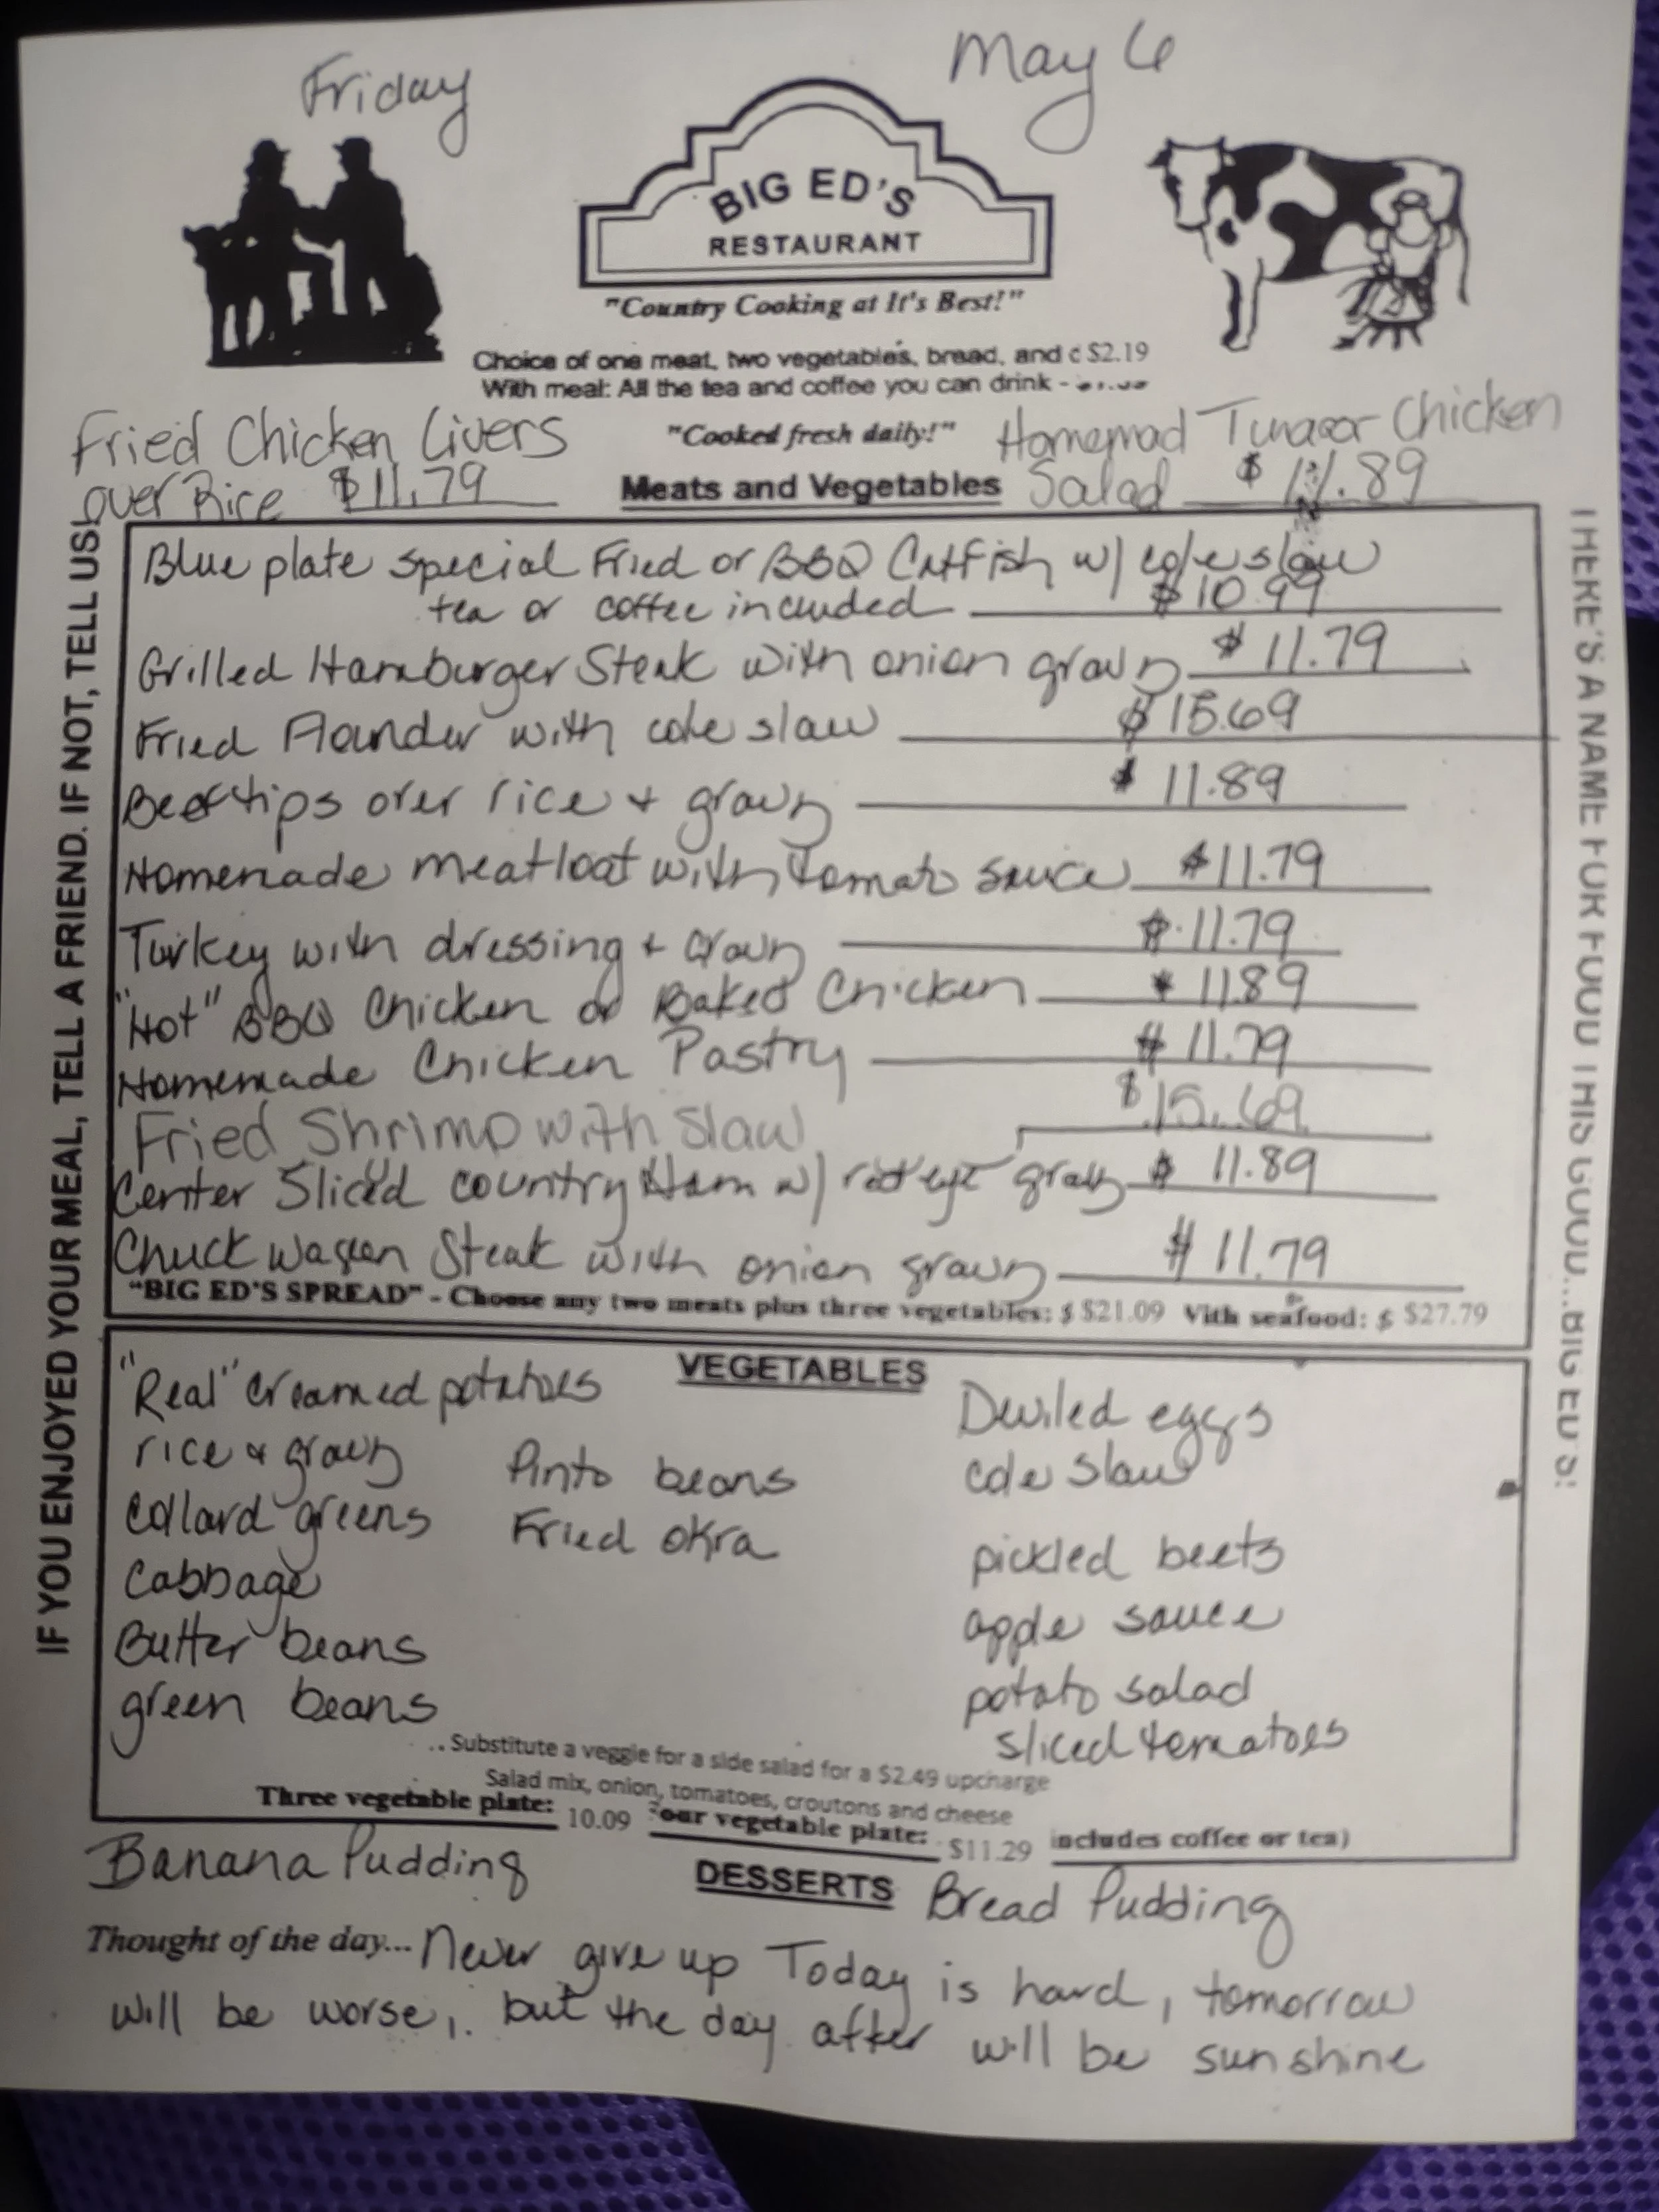 Friday
May 6
BIG ED'S
RESTAURANT
"Country Cooking at It's Best!"
Choice of one meat, two vegetables, bread, and $2.19
With meal: All the tea and coffee you can drink -
"Cooked fresh daily!"
Fried Chicken Livers
over Rice $11.79
Homemad Tuna or Chicken
Salad $11.89
Meats and Vegetables
IF YOU ENJOYED YOUR MEAL, TELL A FRIEND. IF NOT, TELL US!
Blue plate special Fried or BBQ Catfish w/ cole slaw
tea or coffee included $10.99
Grilled Hamburger Steak with onion gravy $11.79
Fried Flounder with cole slaw $15.69
Beef tips over rice + gravy $11.89
Homemade meatloaf with tomato sauce $11.79
Turkey with dressing + Gravy $11.79
"Hot" BBQ Chicken or Baked Chicken $11.89
Homemade Chicken Pastry $11.79
Fried Shrimp with Slaw $15.69
Center Sliced country Ham w/ red eye gravy $11.89
Chuck wagon Steak with onion gravy $11.79
"BIG ED'S SPREAD" - Choose any two meats plus three vegetables: $ $21.09 With seafood: $ $27.79
THERE'S A NAME FOR FOOD THIS GOOD...BIG ED'S!
VEGETABLES
"Real" creamed potatoes
rice & gravy
Collard greens
Cabbage
Butter beans
green beans
Pinto beans
Fried okra
Deviled eggs
cole slaw
pickled beets
apple sauce
potato salad
sliced tomatoes
..Substitute a veggie for a side salad for a $2.49 upcharge
Salad mix, onion, tomatoes, croutons and cheese
Three vegetable plate: 10.09 Four vegetable plate: $11.29 includes coffee or tea)
DESSERTS
Banana Pudding
Bread Pudding
Thought of the day... Never give up Today is hard, tomorrow
will be worse, but the day after will be sunshine